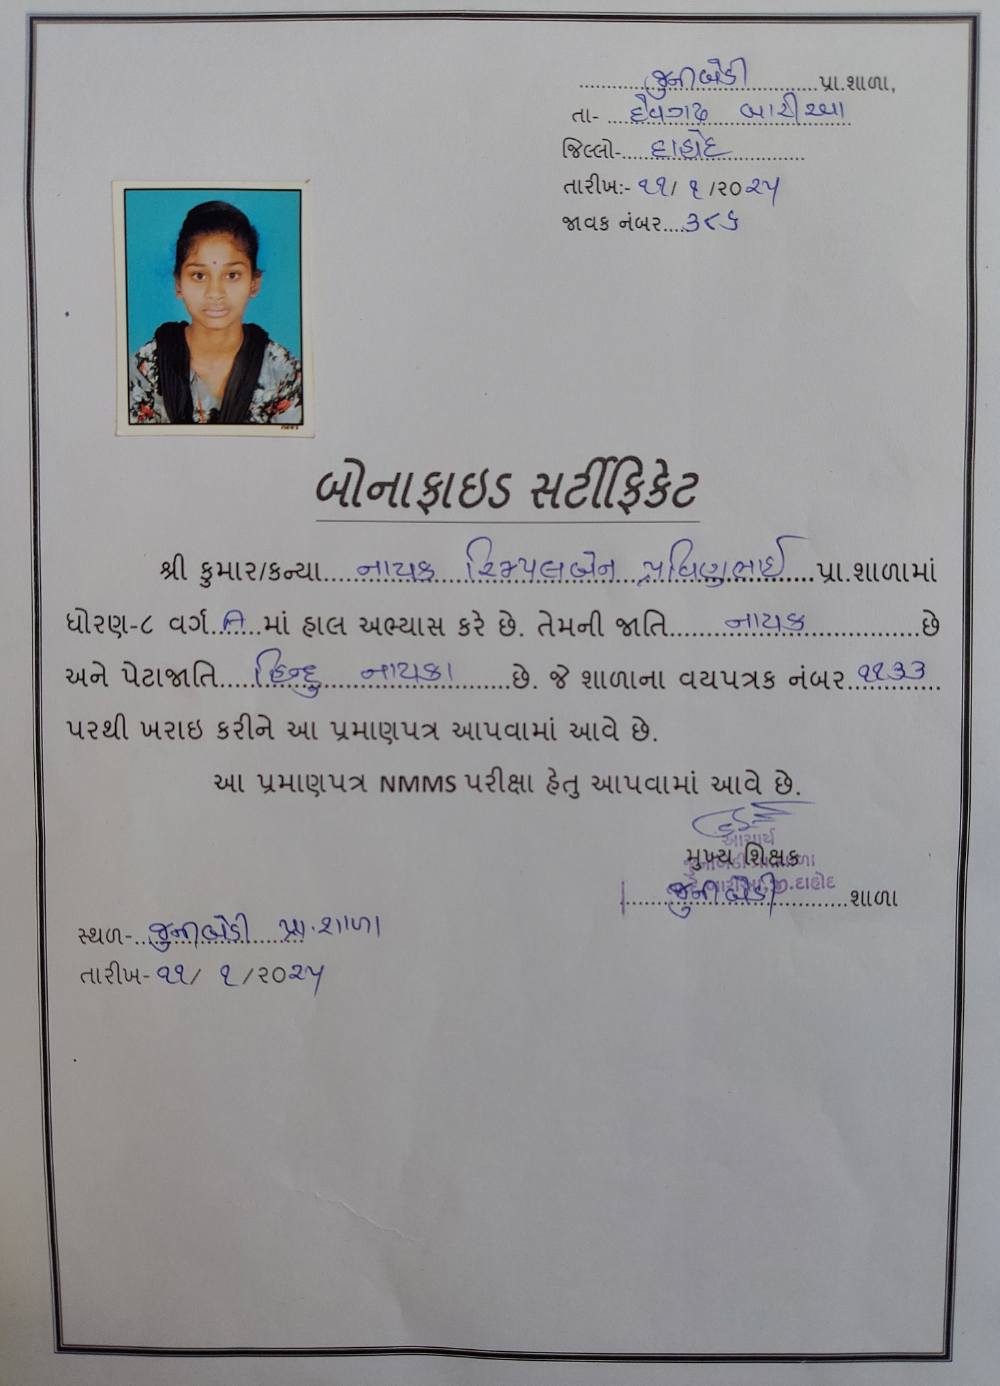 જુનીબેડી પ્રા.શાળા,
તા- દેવગઢ બારીઆ
જિલ્લો- દાહોદ
તારીખ:- ૧૧/ ૧ /૨૦૨૫
જાવક નંબર....૩૮૬
બોનાફાઇડ સર્ટીફિકેટ
શ્રી કુમાર/કન્યા....નાયક રિમ્પલબેન પ્રવિણભાઈ....પ્રા.શાળામાં
ધોરણ-૮ વર્ગ......માં હાલ અભ્યાસ કરે છે. તેમની જાતિ......નાયક......છે
અને પેટાજાતિ....હિન્દુ નાયકા......છે. જે શાળાના વયપત્રક નંબર..૧૧૩૩
પરથી ખરાઇ કરીને આ પ્રમાણપત્ર આપવામાં આવે છે.
આ પ્રમાણપત્ર NMMS પરીક્ષા હેતુ આપવામાં આવે છે.
આચાર્ય
મુખ્ય શિક્ષક
જી.દાહોદ
જુનીબેડી શાળા
સ્થળ- જુનીબેડી પ્રા.શાળા
તારીખ- ૧૧/ ૧ /૨૦૨૫